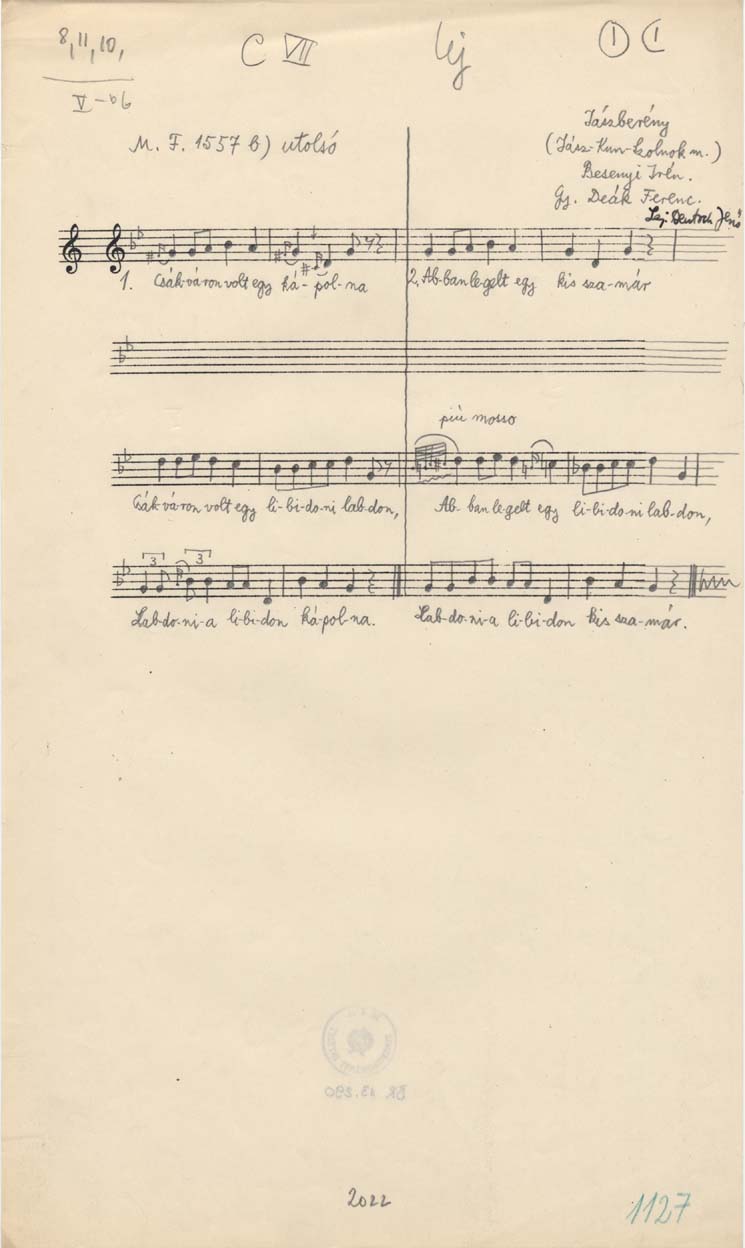 8, 11, 10,
V-b6
C VII
lej
1 1
M. F. 1557 b) utolsó
Jászberény
(Jász-Kun-Szolnok m.)
Besenyi Irén.
Gy. Deák Ferenc.
Lej. Deutsch Jenő
1. Csák-vá-ron volt egy ká-pol-na 2. Ab-ban le-gelt egy kis sza-már
più mosso
3 3
Csák-vá-ron volt egy li-bi-do-ni lab-don, Ab-ban le-gelt egy li-bi-do-ni lab-don,
Lab-do-ni-a li-bi-don ká-pol-na. Lab-do-ni-a li-bi-don kis sza-már.
BR. 13.290
2022
1127